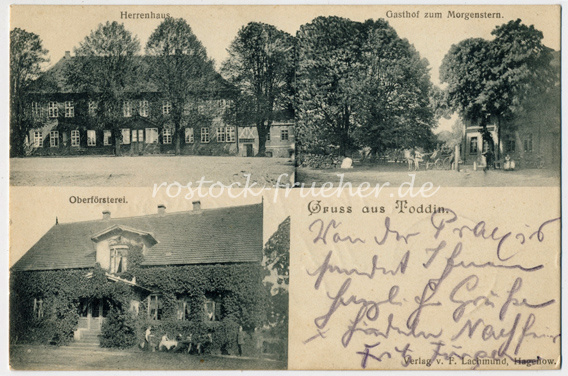 Herrenhaus.
Gasthof zum Morgenstern.
rostock-frueher.de
Oberförsterei.
Gruss aus Toddin.
Von der
sendet Ihnen
herzl. Grüße
Fritz
Verlag v. F. Lachmund, Hagenow.